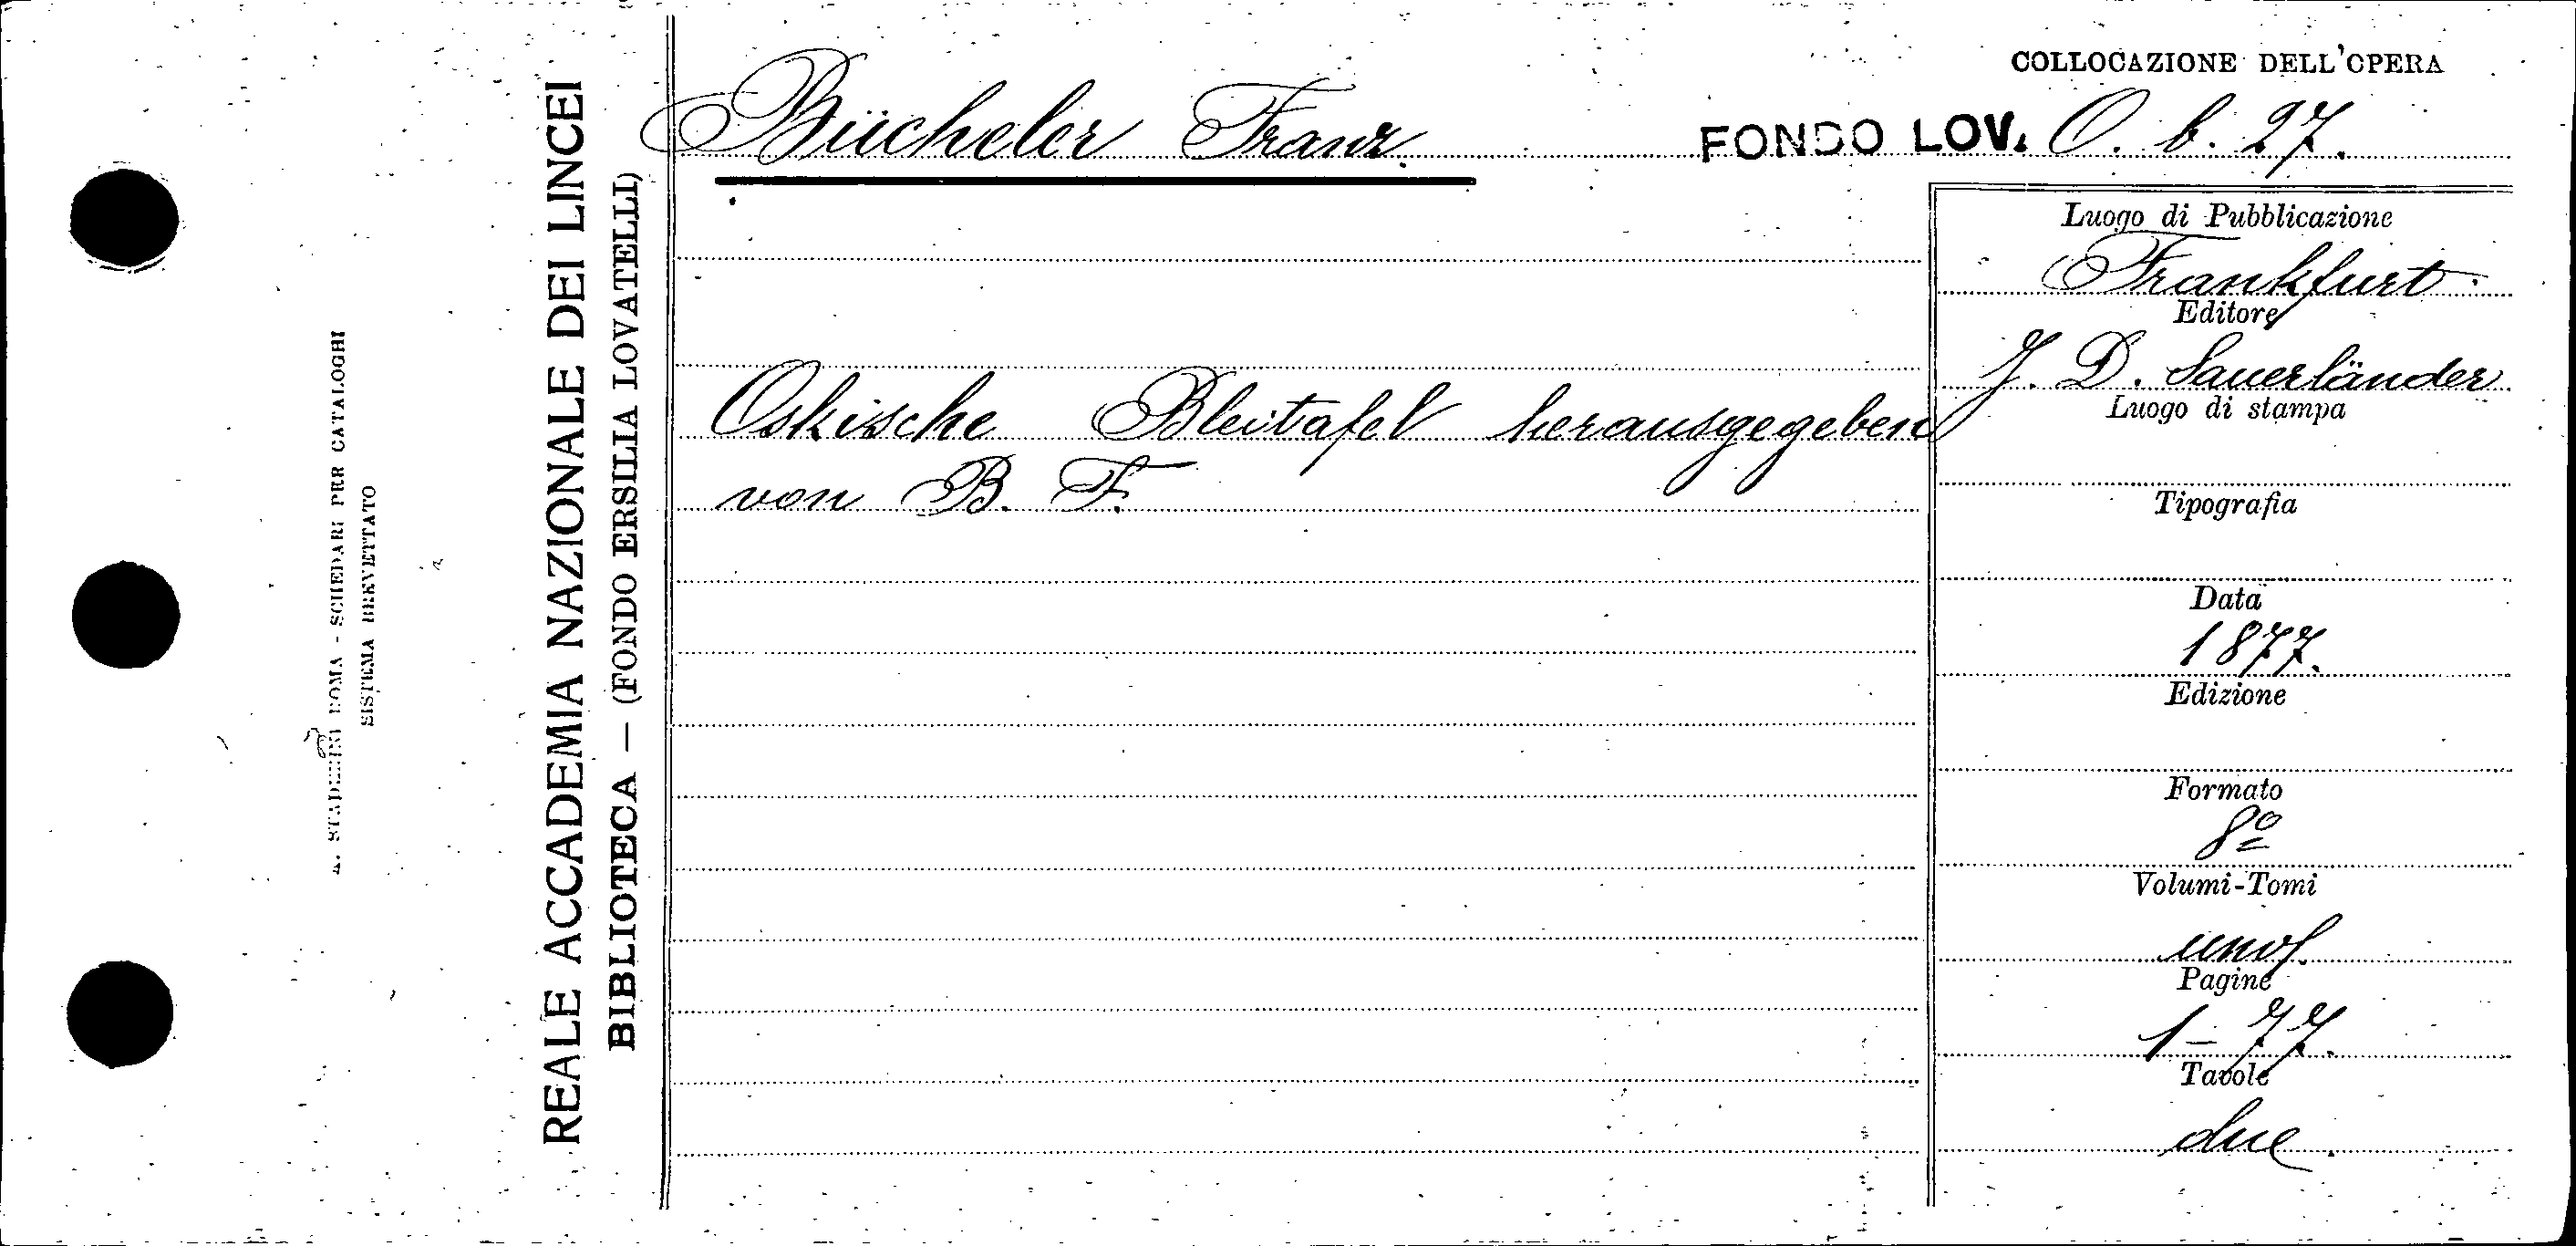 COLLOCAZIONE DELL'OPERA
Bücheler Franz.
FONDO LOV. O. b. 27.
Oskische Bleitafel herausgegeben
von B. F.
Luogo di Pubblicazione
Frankfurt
Editore
J. D. Sauerländer
Luogo di stampa
Tipografia
Data
1877.
Edizione
Formato
8º
Volumi-Tomi
Pagine
1-77.
Tavole
due
REALE ACCADEMIA NAZIONALE DEI LINCEI
BIBLIOTECA — (FONDO ERSILIA LOVATELLI)
ROMA - SCHEDARI PER CATALOGHI
SISTEMA BREVETTATO